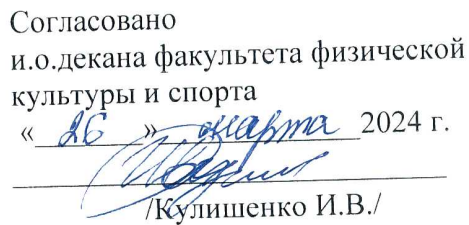 Согласовано
и.о.декана факультета физической
культуры и спорта
«26» марта 2024 г.
/Кулишенко И.В./